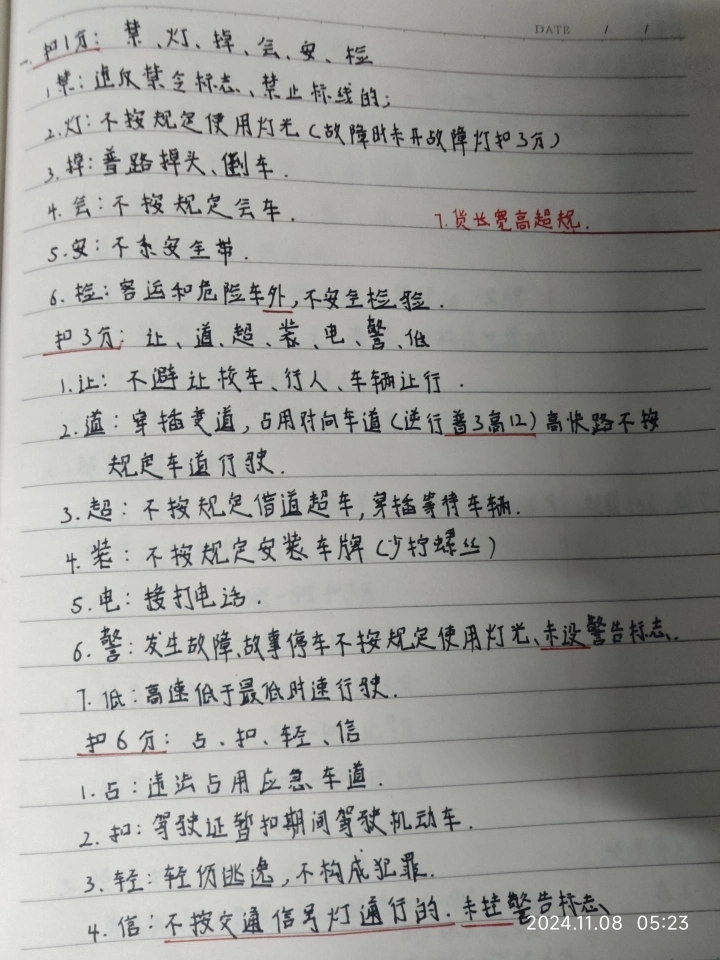 DATE / /
一. 扣1分：禁、灯、掉、会、安、检
1.禁：违反禁令标志、禁止标线的；
2.灯：不按规定使用灯光（故障时未开故障灯扣3分）
3.掉：普路掉头、倒车．
4.会：不按规定会车．
7.货长宽高超规．
5.安：不系安全带．
6.检：客运和危险车外，不安全检验．
扣3分：让、道、超、装、电、警、低
1.让：不避让校车、行人、车辆让行．
2.道：穿插变道，占用对向车道（逆行普3高12）高快路不按
规定车道行驶．
3.超：不按规定借道超车，穿插等待车辆．
4.装：不按规定安装车牌（少拧螺丝）
5.电：接打电话．
6.警：发生故障、故事停车不按规定使用灯光、未设警告标志．
7.低：高速低于最低时速行驶．
扣6分：占、扣、轻、信
1.占：违法占用应急车道．
2.扣：驾驶证暂扣期间驾驶机动车．
3.轻：轻伤逃逸，不构成犯罪．
4.信：不按交通信号灯通行的．未挂警告标志
2024.11.08 05:23